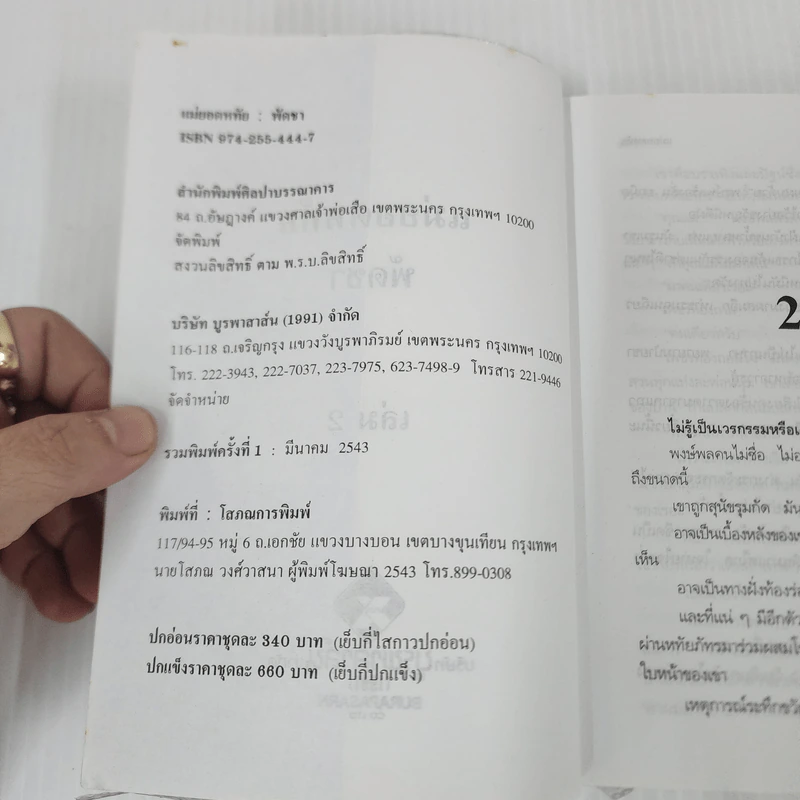 แม่ยอดหทัย : พัดชา
ISBN 974-255-444-7
สำนักพิมพ์ศิลปาบรรณาคาร
84 ถ.อัษฎางค์ แขวงศาลเจ้าพ่อเสือ เขตพระนคร กรุงเทพฯ 10200
จัดพิมพ์
สงวนลิขสิทธิ์ ตาม พ.ร.บ.ลิขสิทธิ์
บริษัท บูรพาสาส์น (1991) จำกัด
116-118 ถ.เจริญกรุง แขวงวังบูรพาภิรมย์ เขตพระนคร กรุงเทพฯ 10200
โทร. 222-3943, 222-7037, 223-7975, 623-7498-9 โทรสาร 221-9446
จัดจำหน่าย
รวมพิมพ์ครั้งที่ 1 : มีนาคม 2543
พิมพ์ที่ : โสภณการพิมพ์
117/94-95 หมู่ 6 ถ.เอกชัย แขวงบางบอน เขตบางขุนเทียน กรุงเทพฯ
นายโสภณ วงศ์วาสนา ผู้พิมพ์โฆษณา 2543 โทร.899-0308
ปกอ่อนราคาชุดละ 340 บาท (เย็บกี่ไสกาวปกอ่อน)
ปกแข็งราคาชุดละ 660 บาท (เย็บกี่ปกแข็ง)
2
ไม่รู้เป็นเวรกรรมหรือเ
พงษ์พลคนไม่ซื่อ ไม่อ
ถึงขนาดนี้
เขาถูกสุนัขรุมกัด มัน
อาจเป็นเบื้องหลังของเ
เห็น
อาจเป็นทางฝั่งท้องร่อ
และที่แน่ ๆ มีอีกตัว
ผ่านหทัยภัทรมาร่วมผสมโ
ใบหน้าของเขา
เหตุการณ์ระทึกขวั